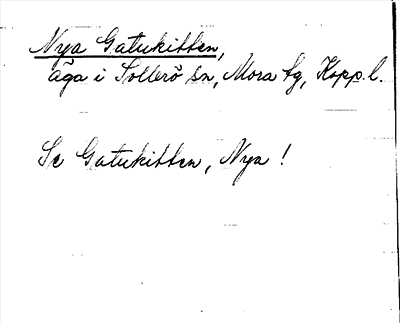 Nya Gatukitten,
äga i Sollerö sn, Mora tg, Kopp. l.
Se Gatukitten, Nya !